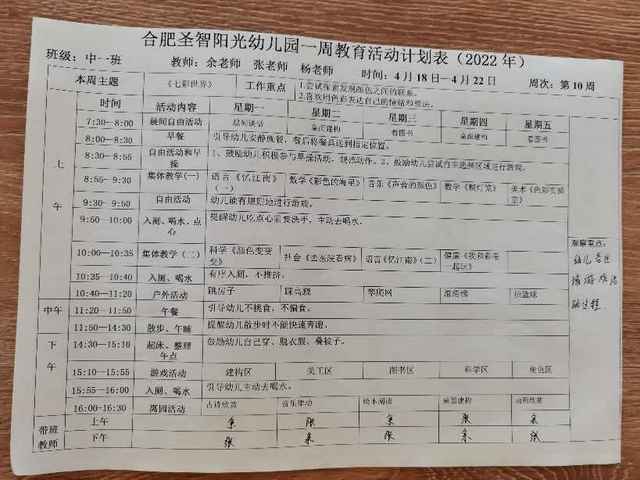 合肥圣智阳光幼儿园一周教育活动计划表（2022 年）
班级：中一班 教师：余老师 张老师 杨老师 时间：4 月 18 日—4 月 22 日 周次：第 10 周
本周主题 《七彩世界》 工作重点 1.尝试探索发现颜色之间的联系。
2.喜欢用色彩表达自己的情绪和想法。
时间 活动内容 星期一 星期二 星期三 星期四 星期五
上午
7:30—8:00 晨间自由活动 晨间谈话 桌面建构 看图书 桌面建构 看图书
8:00—8:30 早餐 引导幼儿安静就餐，餐后将餐具送到指定位置。
8:30—8:55 自由活动和早操
8:55—9:30 集体教学（一） 语言《忆江南》（一） 数学《彩色的海星》 音乐《声音的颜色》 数学
9:30—9:50 自由活动 幼儿能有规则地进行游戏。
9:50—10:00 入厕、喝水、点心 提醒幼儿吃点心前要洗手，主动去喝水。
10:00—10:35 集体教学（二） 科学《颜色变变变》 社会《去医院看病》 语言《忆江南》（二） 健康
10:35—10:40 入厕、喝水 有序入厕，不推挤。
10:40—11:20 户外活动 跳房子 踩高跷 攀爬网
中午 11:20—11:50 午餐 引导幼儿不挑食，不偏食。
11:50—14:30 散步、午睡 提醒幼儿散步时不能快速奔跑。
下午
14:30—15:10 起床、整理 午点 鼓励幼儿自己穿、脱衣服，叠被子。
15:10—15:55 游戏活动 建构区 美工区 图书区 科学区 角色区
15:55—16:00 入厕、喝水 引导幼儿主动去喝水。
16:00—16:30 离园活动 古诗欣赏 音乐律动 绘本阅读 桌面建构
带班教师 上午 余 张 余 余
下午 张 余 张 余 张
观察重点：
幼儿